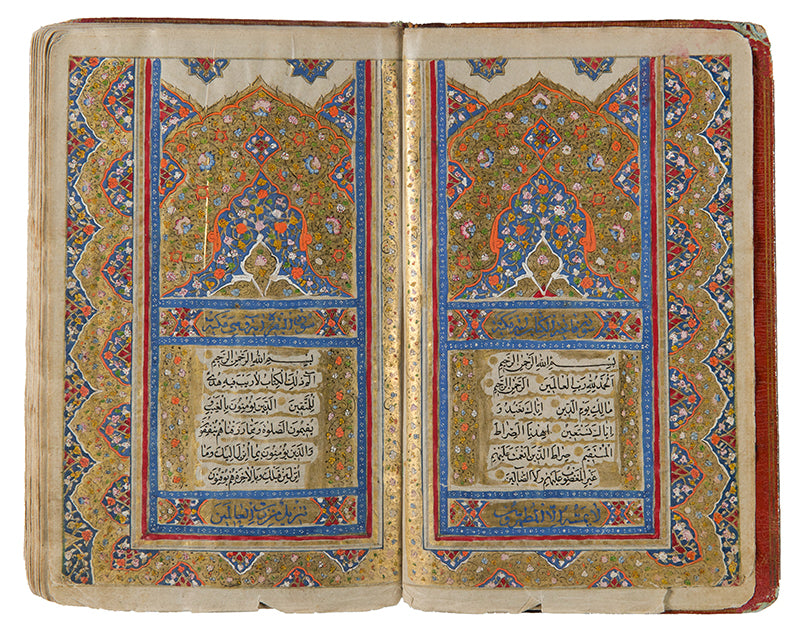 سورة فاتحة الكتاب
بسم الله الرحمن الرحيم
الحمد لله رب العالمين الرحمن الرحيم
مالك يوم الدين اياك نعبد و
اياك نستعين اهدنا الصراط
المستقيم صراط الذين انعمت عليهم
غير المغضوب عليهم ولا الضالين
لا يمسه الا المطهرون
سورة البقرة
بسم الله الرحمن الرحيم
الم ذلك الكتاب لا ريب فيه هدى
للمتقين الذين يؤمنون بالغيب
يقيمون الصلوة ومما رزقناهم ينفقون
والذين يؤمنون بما انزل اليك وما
انزل من قبلك وبالاخرة هم يوقنون
تنزيل من رب العالمين